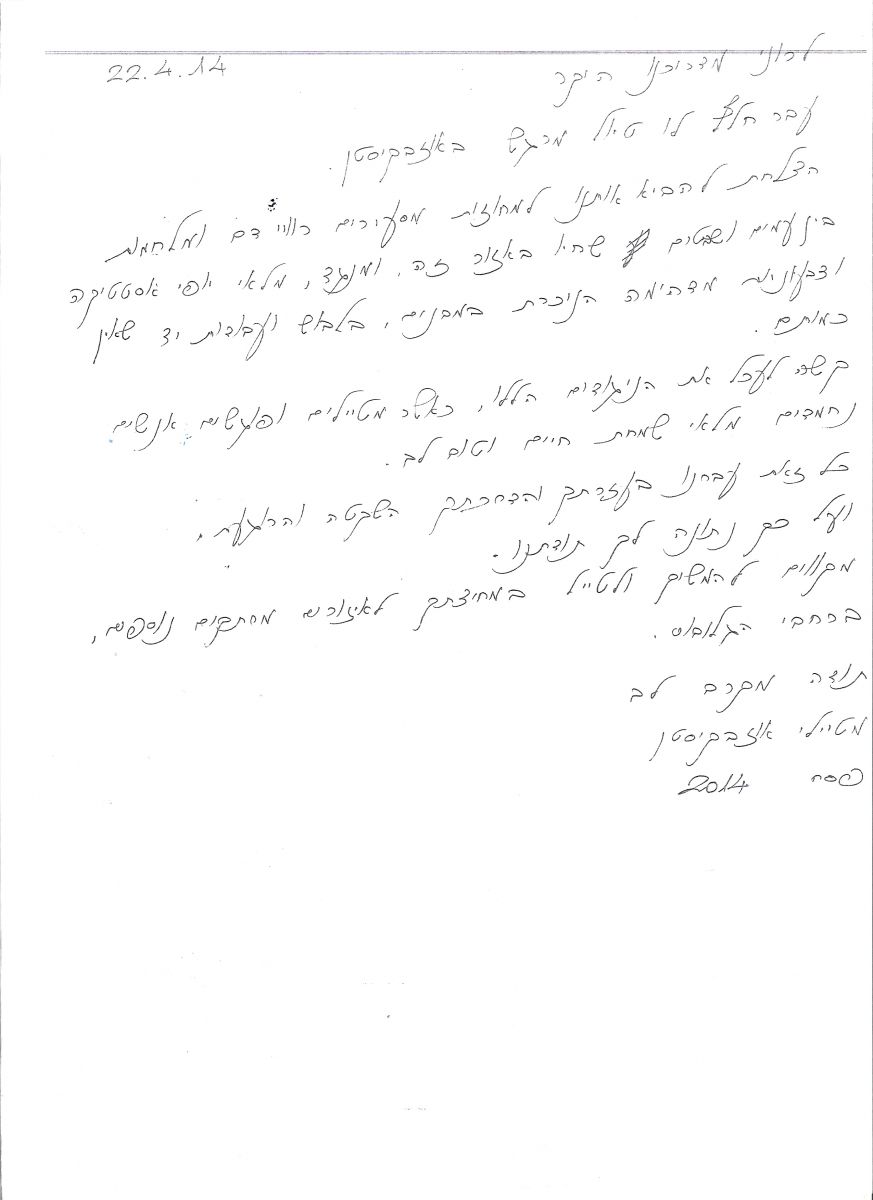 22.4.14
לרוני מדריכנו היקר
עבר חלף לו טיול מרגש באוזבקיסטן.
הצלחת להביא אותנו למחוזות מסעירים רוויי דם ומלחמות
בין עמים ושבטים שחיו באזור זה, ומנגד, מלאי יופי אסטטיקה
וצבעוניות מדהימה הניכרת במבנים, בלבוש ועבודות יד שאין
כמותם.
קשה לעכל את הניגודים הללו, כאשר מטיילים ופוגשים אנשים
נחמדים מלאי שמחת חיים וטוב לב.
כל זאת עברנו בעזרתך והדרכתך השקטה והרוגעת,
ועל כך נתונה לך תודתנו.
מקווים להמשיך ולטייל במחיצתך לאיזורים מרתקים נוספים,
ברחבי הגלובוס.
תודה מקרב לב
מטיילי אוזבקיסטן
פסח 2014